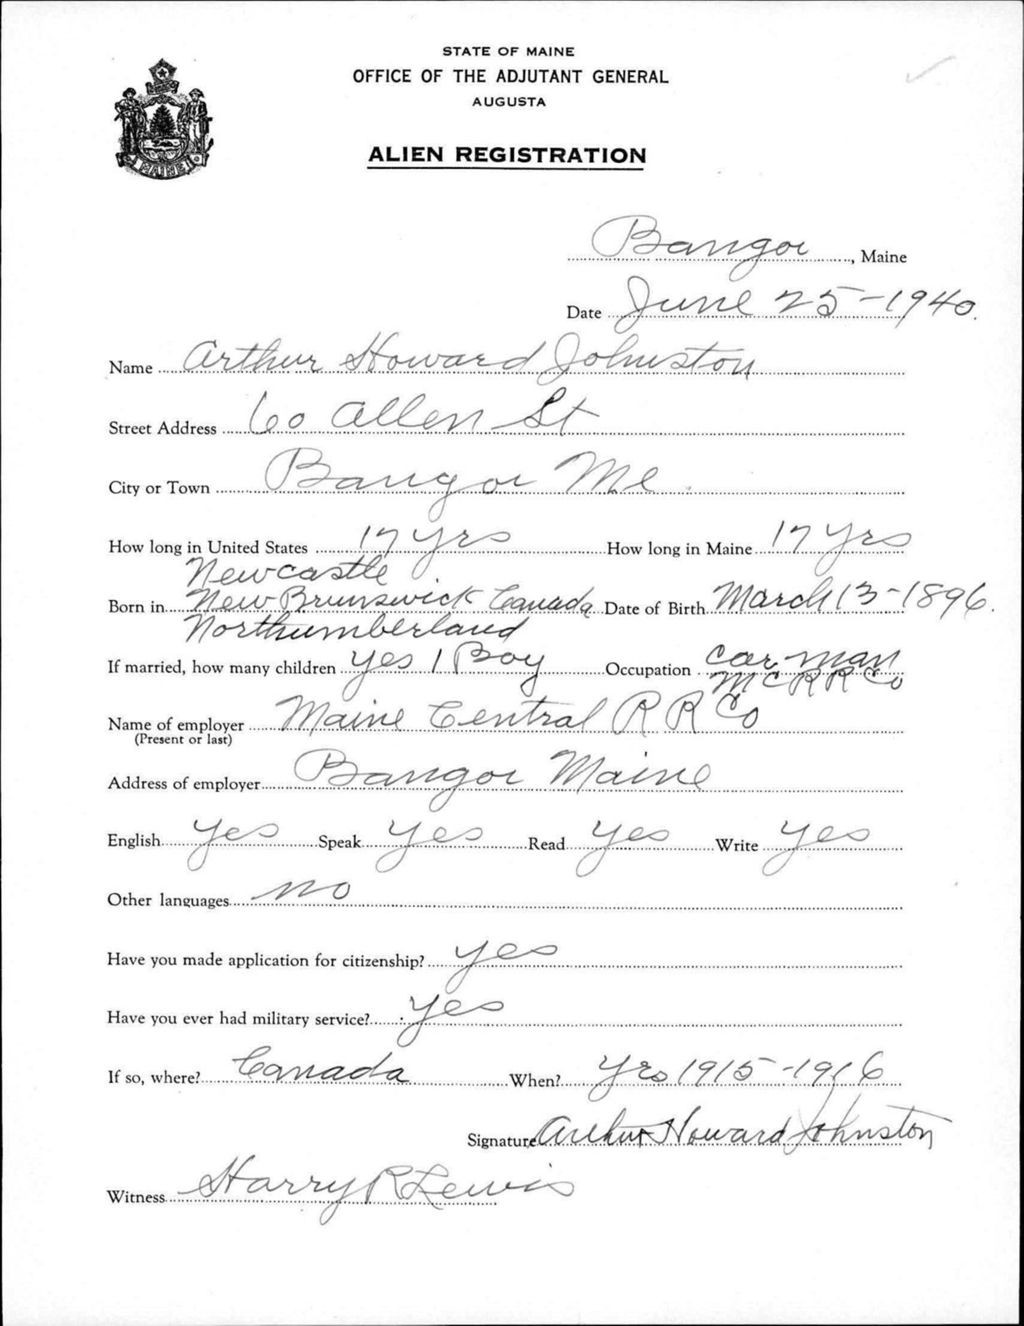 STATE OF MAINE
OFFICE OF THE ADJUTANT GENERAL
AUGUSTA
ALIEN REGISTRATION
MAINE
Bangor, Maine
Date June 25-1940.
Name Arthur Howard Johnston
Street Address 60 Allen St
City or Town Bangor Me.
How long in United States 17 yrs How long in Maine 17 yrs
Newcastle
Born in New Brunswick Canada Date of Birth March 13-1896.
Northumberland
If married, how many children yes 1 Boy Occupation car man
M C R R Co
Name of employer Maine Central R R Co
(Present or last)
Address of employer Bangor Maine
English yes Speak yes Read yes Write yes
Other languages no
Have you made application for citizenship? yes
Have you ever had military service? yes
If so, where? Canada When? yrs 1915-1916
Signature Arthur Howard Johnston
Witness Harry R Lewis